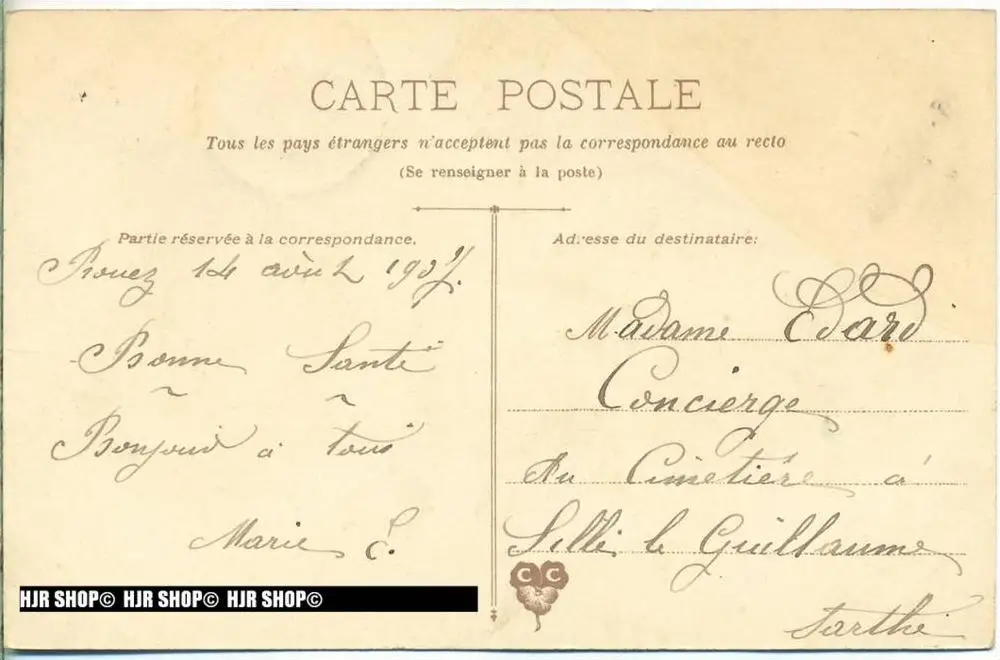 CARTE POSTALE
Tous les pays étrangers n'acceptent pas la correspondance au recto
(Se renseigner à la poste)
Partie réservée à la correspondance.
Rouez 14 août 1907.
Bonne Santé
Bonjour à tous
Marie E.
Adresse du destinataire:
Madame Edard
Concierge
Au Cimetière à
Sillé le Guillaume
Sarthe
C C
HJR SHOP© HJR SHOP© HJR SHOP©